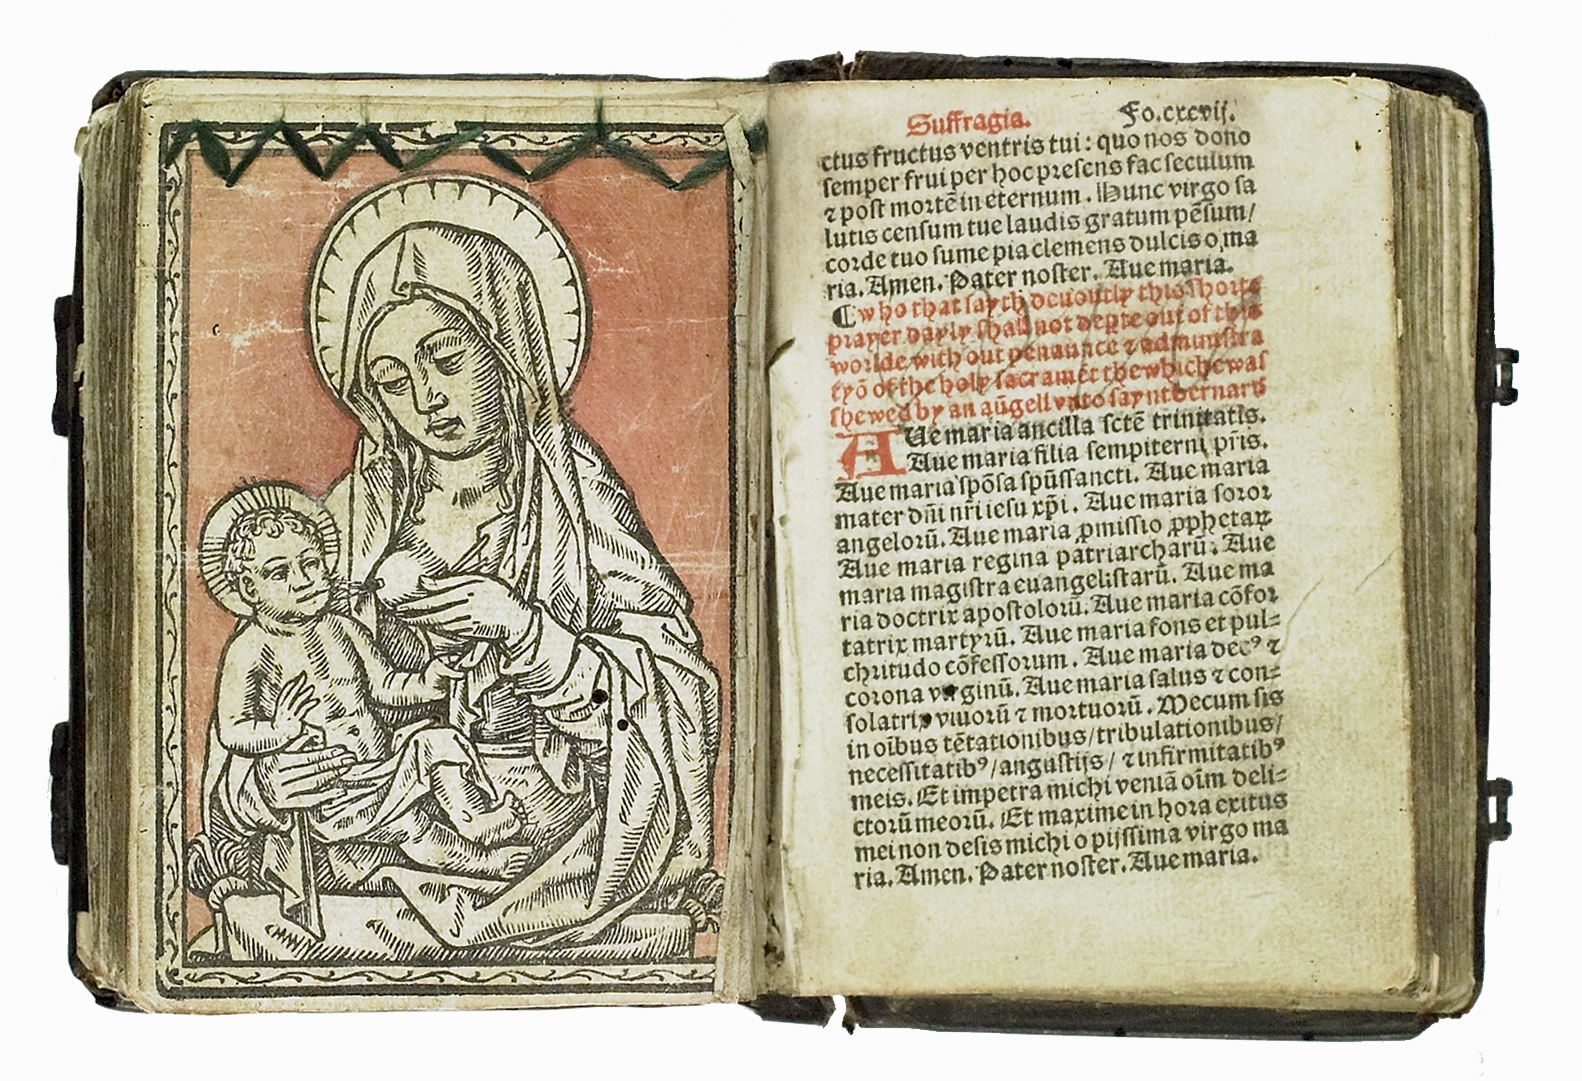 Suffragia. Fo.cxcvij.
ctus fructus ventris tui : quo nos dono
semper frui per hoc presens fac seculum
⁊ post mortē in eternum . Hunc virgo sa
lutis censum tue laudis gratum pēsum/
corde tuo sume pia clemens dulcis o ma
ria. Amen. Pater noster. Aue maria.
¶ who that sayth deuoutly this shorte
prayer dayly shall not depte out of this
worlde with out penaunce ⁊ admynistra
cyō of the holy sacramēt the whiche was
shewed by an aūgell vnto saynt bernard
AUe maria ancilla sctē trinitatis.
Aue maria filia sempiterni pr̄is.
Aue maria spōsa spūssancti. Aue maria
mater dn̄i nr̄i iesu xp̄i . Aue maria soror
angelorū. Aue maria ꝓmissio ꝓphetaꝝ.
Aue maria regina patriarcharū. Aue
maria magistra euangelistarū. Aue ma
ria doctrix apostolorū. Aue maria cōfor
tatrix martyrū. Aue maria fons et pul=
chritudo cōfessorum . Aue maria decꝰ ⁊
corona virginū. Aue maria salus ⁊ con=
solatrix viuorū ⁊ mortuorū . Mecum sis
in oībus tētationibus/tribulationibus/
necessitatibꝰ/angustijs/ ⁊ infirmitatibꝰ
meis. Et impetra michi veniā oīm deli=
ctorū meorū. Et maxime in hora exitus
mei non desis michi o pijssima virgo ma
ria. Amen. Pater noster. Aue maria.